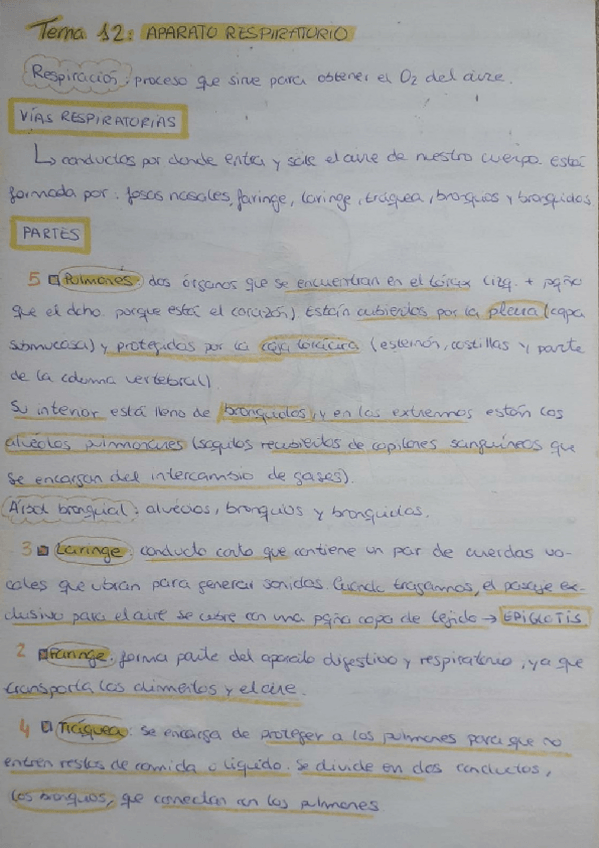 Tema 12: APARATO RESPIRATORIO
Respiración: proceso que sirve para obtener el O2 del aire.
VÍAS RESPIRATORIAS
↳ conductos por donde entra y sale el aire de nuestro cuerpo. está
formada por: fosas nasales, faringe, laringe, tráquea, bronquios y bronquiolos
PARTES
5 Pulmones: dos órganos que se encuentran en el tórax (izq. + pqño
que el dcho. porque está el corazón). Están cubiertos por la pleura (capa
submucosa) y protegidos por la caja torácica (esternón, costillas y parte
de la columna vertebral).
Su interior está lleno de bronquiolos, y en los extremos están los
alvéolos pulmonares (saquitos recubiertos de capilares sanguíneos que
se encargan del intercambio de gases).
Árbol bronquial: alveolos, bronquios y bronquiolos.
3 Laringe: conducto corto que contiene un par de cuerdas vo-
cales que vibran para generar sonidos. Cuando tragamos, el pasaje ex-
clusivo para el aire se cubre con una pqña capa de tejido → EPIGLOTIS
2 Faringe: forma parte del aparato digestivo y respiratorio, ya que
transporta los alimentos y el aire.
4 Tráquea: se encarga de proteger a los pulmones para que no
entren restos de comida o líquido. Se divide en dos conductos,
los bronquios, que conectan con los pulmones